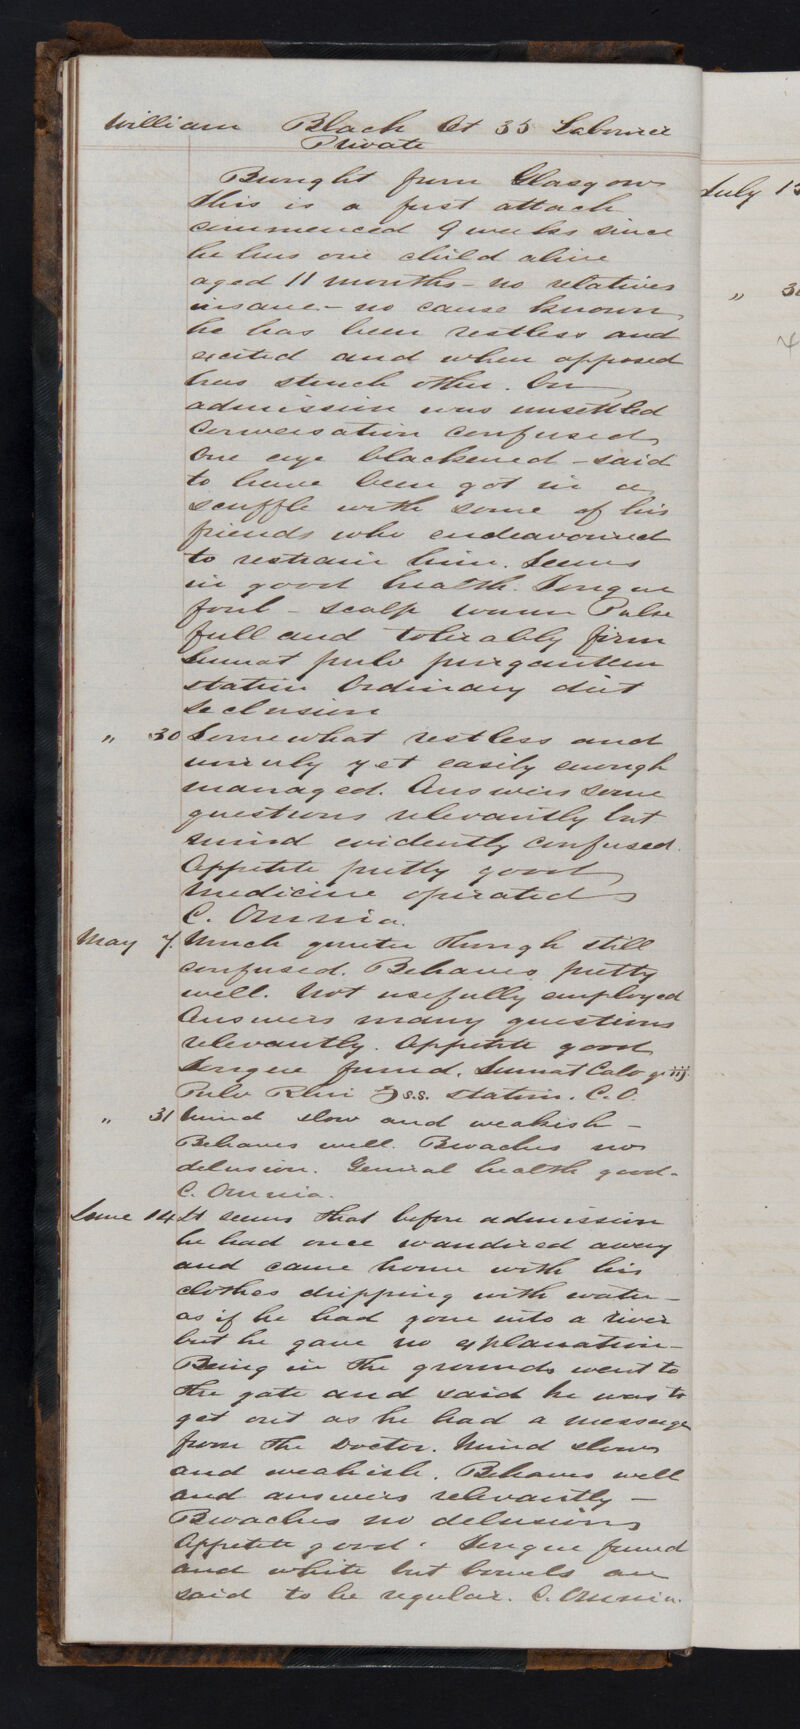 William Black Æt 35 Labourer
Private
Brought from Glasgow
This is a first attack
commenced 9 weeks since
he has one child alive
aged 11 months - no relatives
insane - no cause known
he has been restless and
excited and when opposed
has struck other. On
admission was unsettled
Conversation confused
One eye blackened - said
to have been got in a
scuffle with some of his
friends who endeavoured
to restrain him. Seems
in good health. Tongue
foul - scalp warm Pulse
full and tolerably firm
Sumat pulv purgantem
statim Ordinary diet
Seclusion
" 30 Somewhat restless and
unruly yet easily enough
managed. Answers some
questions relevantly but
mind evidently confused.
Appetite pretty good
Medicine operated
C. Omnia.
May 7. Much quieter though still
confused. Behaves pretty
well. Not usefully employed
Answers many questions
relevantly. Appetite good
Tongue furred. Sumat Calo gr iij
Pulv Rhei ʒss. statim. C. O.
" 31 Mind slow and weakish -
Behaves well. Broaches no
delusion. General health good -
C. Omnia.
June 14 It seems that before admission
he had once wandered away
and came home with his
clothes dripping with water -
as if he had gone into a river
but he gave no explanation -
Being in the grounds went to
the gate and said he was to
get out as he had a message
from the Doctor. Mind slow
and weakish. Behaves well
and answers relevantly -
Broaches no delusions
Appetite good. Tongue furred
and white but bowels are
said to be regular. C. Omnia.
July 13
" 3